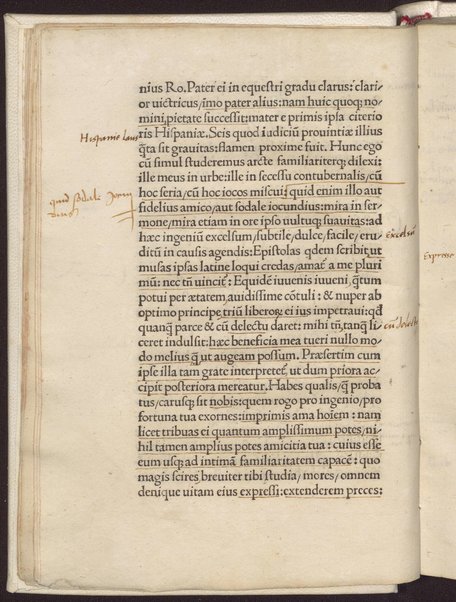 nius Ro. Pater ei in equestri gradu clarus: clari
or uictricus/īmo pater alius: nam huic quoq; no
mini pietate successit: mater e primis ipsa citerio
Hispanie laus
ris Hispaniæ. Seis quod iudiciū prouintiæ illius
q̃ta sit grauitas: flamen proxime fuit. Hunc ego
cū simul studeremus arcte familiariterq; dilexi:
ille meus in urbe: ille in secessu contubernalis/cū
hoc seria/cū hoc iocos miscui: quid enim illo aut
quid sodale
fidelius amico/aut sodale iocundius: mira in ser
mone/mira etiam in ore ipso uultuq; suauitas: ad
hæc ingeniū excelsum/subtile/dulce/facile/eru
excelsū
ditū in causis agendis: Epistolas qdem scribit ut
Expresse
musas ipsas latine loqui credas/amat̄ a me pluri
mū: nec tn̄ uincit̄: Equidē iuuenis iuueni q̃tum
potui per ætatem auidissime cōtuli: & nuper ab
optimo principe triū liberoꝝ ei ius impetraui: qd
quanq̃ parce & cū delectu daret: mihi tn̄ tanq̃ li
cū delectu
ceret indulsit: hæc beneficia mea tueri nullo mo
do melius q̃ ut augeam possum. Præsertim cum
ipse illa tam grate interpretet̄ ut dum priora ac
cipit posteriora mereatur. Habes qualis/q̃ proba
tus/carusq; sit nobis: quem rogo pro ingenio/pro
fortuna tua exornes: imprimis ama hoīem: nam
licet tribuas ei quantum amplissimum potes/ni
hil tamen amplius potes amicitia tua: cuius esse
eum usq; ad intimā familiaritatem capacē: quo
magis scires breuiter tibi studia/mores/omnem
denique uitam eius expressi: extenderem preces: